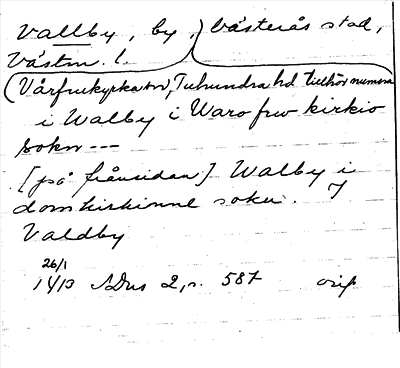 Vallby, by, Västerås stad,
Västm. l.
(Vårfrukyrka sn, Tuhundra hd tillhör numera
i Walby i Waro frw kirkio
sokn ---
[på frånsidan] Walby i
domkirkionne soken.
Valdby
26/1
1413 SDns 2, s. 587 orig